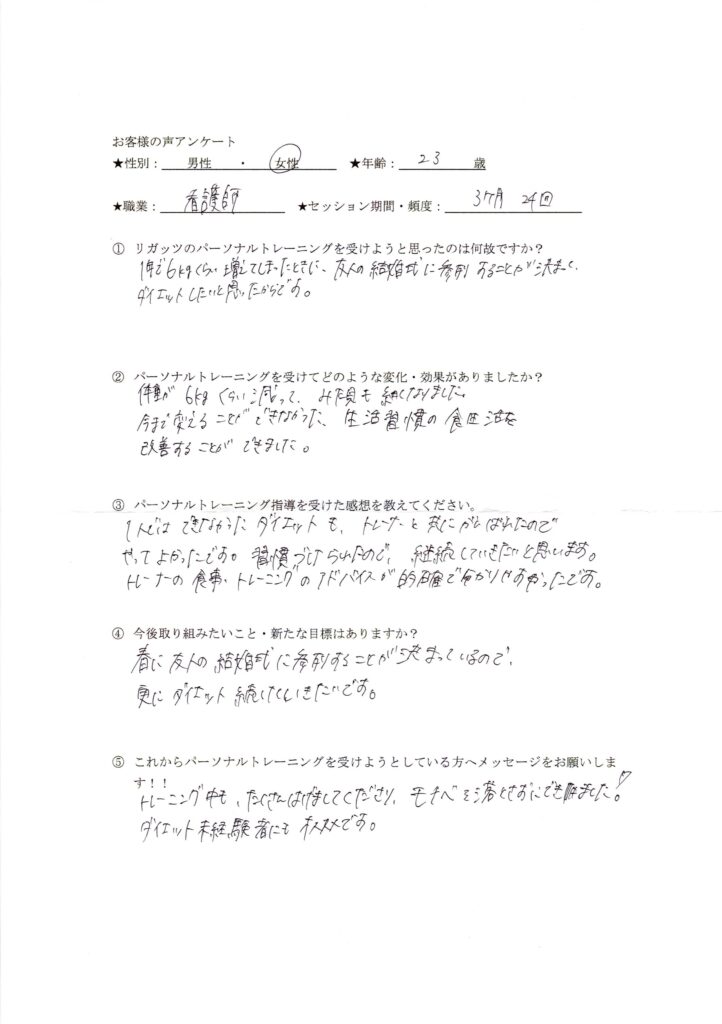 お客様の声アンケート
★性別：　男性　・　女性　★年齢：　23　歳
★職業：　看護師　★セッション期間・頻度：　3ヶ月　24回
① リガッツのパーソナルトレーニングを受けようと思ったのは何故ですか？
1年で6kgくらい増えてしまったときに、友人の結婚式に参列することが決まって、
ダイエットしたいと思ったからです。
② パーソナルトレーニングを受けてどのような変化・効果がありましたか？
体重が6kgくらい減って、み頃も細くなりました。
今まで変えることができなかった、生活習慣の食生活を
改善することができました。
③ パーソナルトレーニング指導を受けた感想を教えてください。
1人ではできなかったダイエットも、トレーナーと共にがんばれたので
やってよかったです。習慣づけられたので、継続していきたいと思います。
トレーナーの食事、トレーニングのアドバイスが的確で分かりやすかったです。
④ 今後取り組みたいこと・新たな目標はありますか？
春に友人の結婚式に参列することが決まっているので、
更にダイエット続けていきたいです。
⑤ これからパーソナルトレーニングを受けようとしている方へメッセージをお願いしま
す！！
トレーニング中も、たくさんはげましてくださり、モチベを落とさずにできました！
ダイエット未経験者にもオススメです。